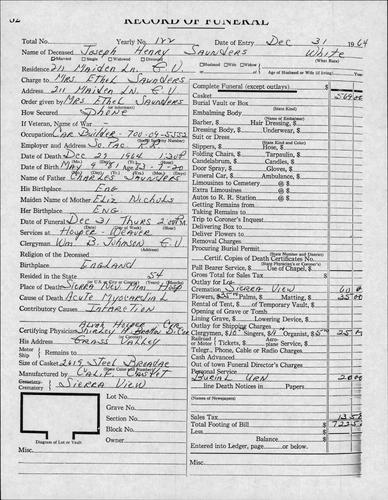 RECORD OF FUNERAL
Total No. Yearly No. 122 Date of Entry Dec 31 1964
Name of Deceased Joseph Henry Saunders White
Married Single Widowed Divorced (What Race)
Residence 211 Maiden Ln. G.V. Husband Wife Widow of
Charge to Mrs Ethel Saunders Age of Husband or Wife (if living) Years
Address 211 Maiden Ln. G.V.
Order given by Mrs Ethel Saunders
How Secured Phone
If Veteran, Name War
Occupation Car Builder - 700-09-5552
Employer So. Pac. R.R.
Date of Death Dec 29 1964 1:20P
Date of Birth May 9
Name of Father Charles Saunders
His Birthplace Eng
Maiden Name of Mother Eliz Nichols
Her Birthplace Eng
Date of Funeral Dec 31 Thurs 2:00 P.M.
Services at Hooper-Weaver
Clergyman Wm. B. Johnson G.V
Religion of the Deceased
Birthplace England
Resided in the State 54
Place of Death Sierra Nev Mem Hosp
Cause of Death Acute Myocardial
Contributory Causes Infarction
Certifying Physician
His Address Grass Valley
Motor Ship Remains to
Size of Casket
Manufactured by Calif Casket
Cemetery Sierra View
Lot No.
Grave No.
Section No.
Block No.
Owner
Diagram of Lot or Vault
Misc.
Complete Funeral (except outlays) $
Casket
Burial Vault or Box
(State Kind)
Embalming Body
(Name of Embalmer)
Barber, $ Hair Dressing, $
Dressing Body, $ Underwear, $
Suit or Dress
(State Kind and Color)
Slippers, $ Hose, $
Folding Chairs, $ Tarpaulin, $
Candelabrum, $ Candles, $
Door Spray, $ Gloves, $
Funeral Car, $ Ambulance, $
Limousines to Cemetery @ $
Extra Limousines @ $
Autos to R. R. Station @ $
Getting Remains from
Taking Remains to
Trip to Coroner's Inquest
Delivering Box to
Deliver Flowers to
Removal Charges
Procuring Burial Permit
Certf. Copies of Death Certificates
Pall Bearer Service, $ Use of Chapel, $
Gross Total for Sales Tax $
Outlay for Lot
Cremation Sierra View
Flowers, $ Palms, $ Matting, $ 25 00
Rental of Tent, $ of Temporary Vault, $
Opening of Grave or Tomb
Lining Grave, $ Lowering Device, $
Outlay for Shipping Charges
Clergyman, $ Singers, $ Organist, $
Railroad or Motor Tickets, $ Aeroplane Service, $
Telegr., Phone, Cable or Radio Charges
Cash Advanced
Out of town Funeral Director's Charges
Personal Service
Burial Urn 20 00
line Death Notices in Papers
(Names of Newspapers)
Sales Tax
Total Footing of Bill $
Less
Balance $
Entered into Ledger, page or below.
Misc.